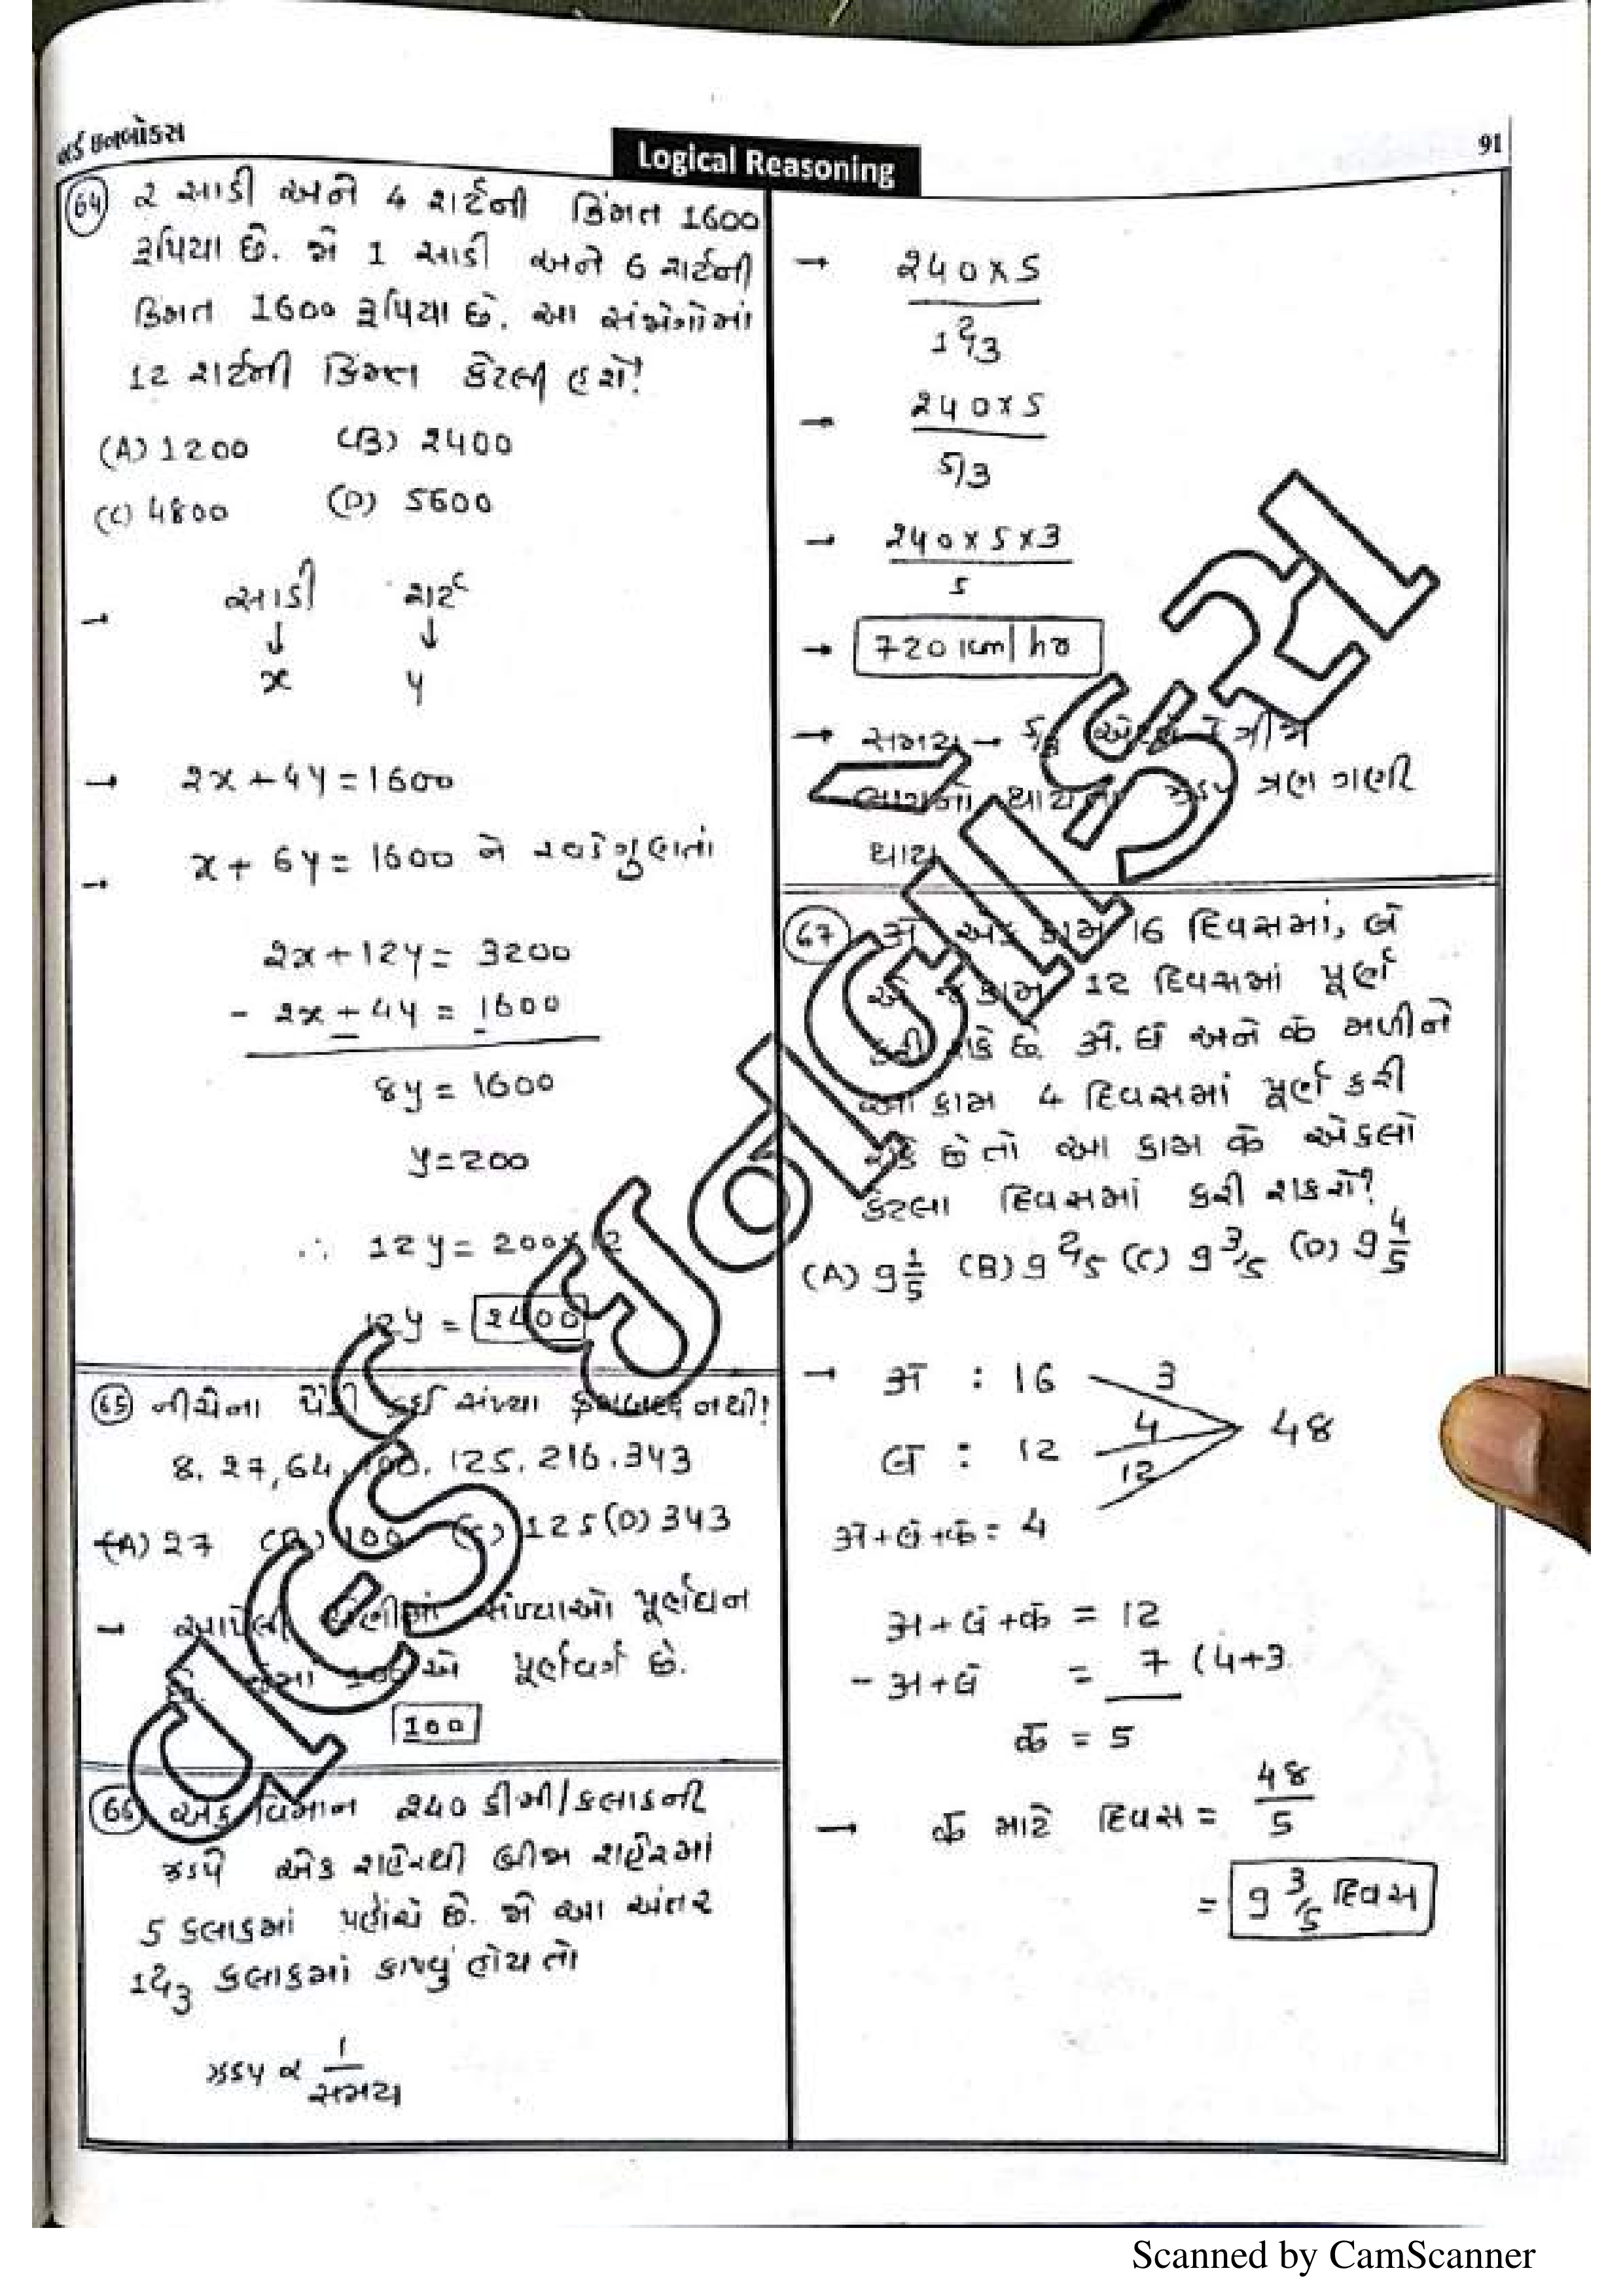 વર્લ્ડ ઇનબોક્સ
Logical Reasoning
91
64 2 સાડી અને 4 શર્ટની કિંમત 1600
રૂપિયા છે. જો 1 સાડી અને 6 શર્ટની
કિંમત 1600 રૂપિયા છે. આ સંજોગોમાં
12 શર્ટની કિંમત કેટલી હશે?
(A) 1200 (B) 2400
(C) 4800 (D) 5600
→ સાડી શર્ટ
↓ ↓
x y
→ 2x + 4y = 1600
→ x + 6y = 1600 ને 2 વડે ગુણતાં
2x + 12y = 3200
- 2x + 4y = 1600
8y = 1600
y = 200
∴ 12y = 200 x 12
12y = 2400
65 નીચેના પૈકી કઈ સંખ્યા નથી?
8, 27, 64, 100, 125, 216, 343
(A) 27 (B) 100 (C) 125 (D) 343
→ આપેલી સંખ્યાઓ પૂર્ણઘન
100 એ પૂર્ણવર્ગ છે.
100
66 એક વિમાન 240 કીમી/કલાકની
ઝડપે એક શહેરથી બીજા શહેરમાં
5 કલાકમાં પહોંચે છે. જો આ અંતર
1 2/3 કલાકમાં કાપવું હોય તો
ઝડપ ∝ 1/સમય
→ 240 x 5
1 2/3
→ 240 x 5
5/3
→ 240 x 5 x 3
5
→ 720 km/hr
→ સમય → ત્રીજા
ભાગનો થાય ઝડપ ત્રણ ગણી
થાય
67 અ એક કામ 16 દિવસમાં, બ
એ જ કામ 12 દિવસમાં પૂર્ણ
કરી શકે છે. અ, બ અને ક મળીને
આ કામ 4 દિવસમાં પૂર્ણ કરી
શકે છે તો આ કામ ક એકલો
કેટલા દિવસમાં કરી શકશે?
(A) 9 1/5 (B) 9 2/5 (C) 9 3/5 (D) 9 4/5
→ અ : 16 3
બ : 12 4 48
12
અ+બ+ક = 4
અ+બ+ક = 12
- અ+બ = 7 (4+3
ક = 5
→ ક માટે દિવસ = 48/5
= 9 3/5 દિવસ
Scanned by CamScanner